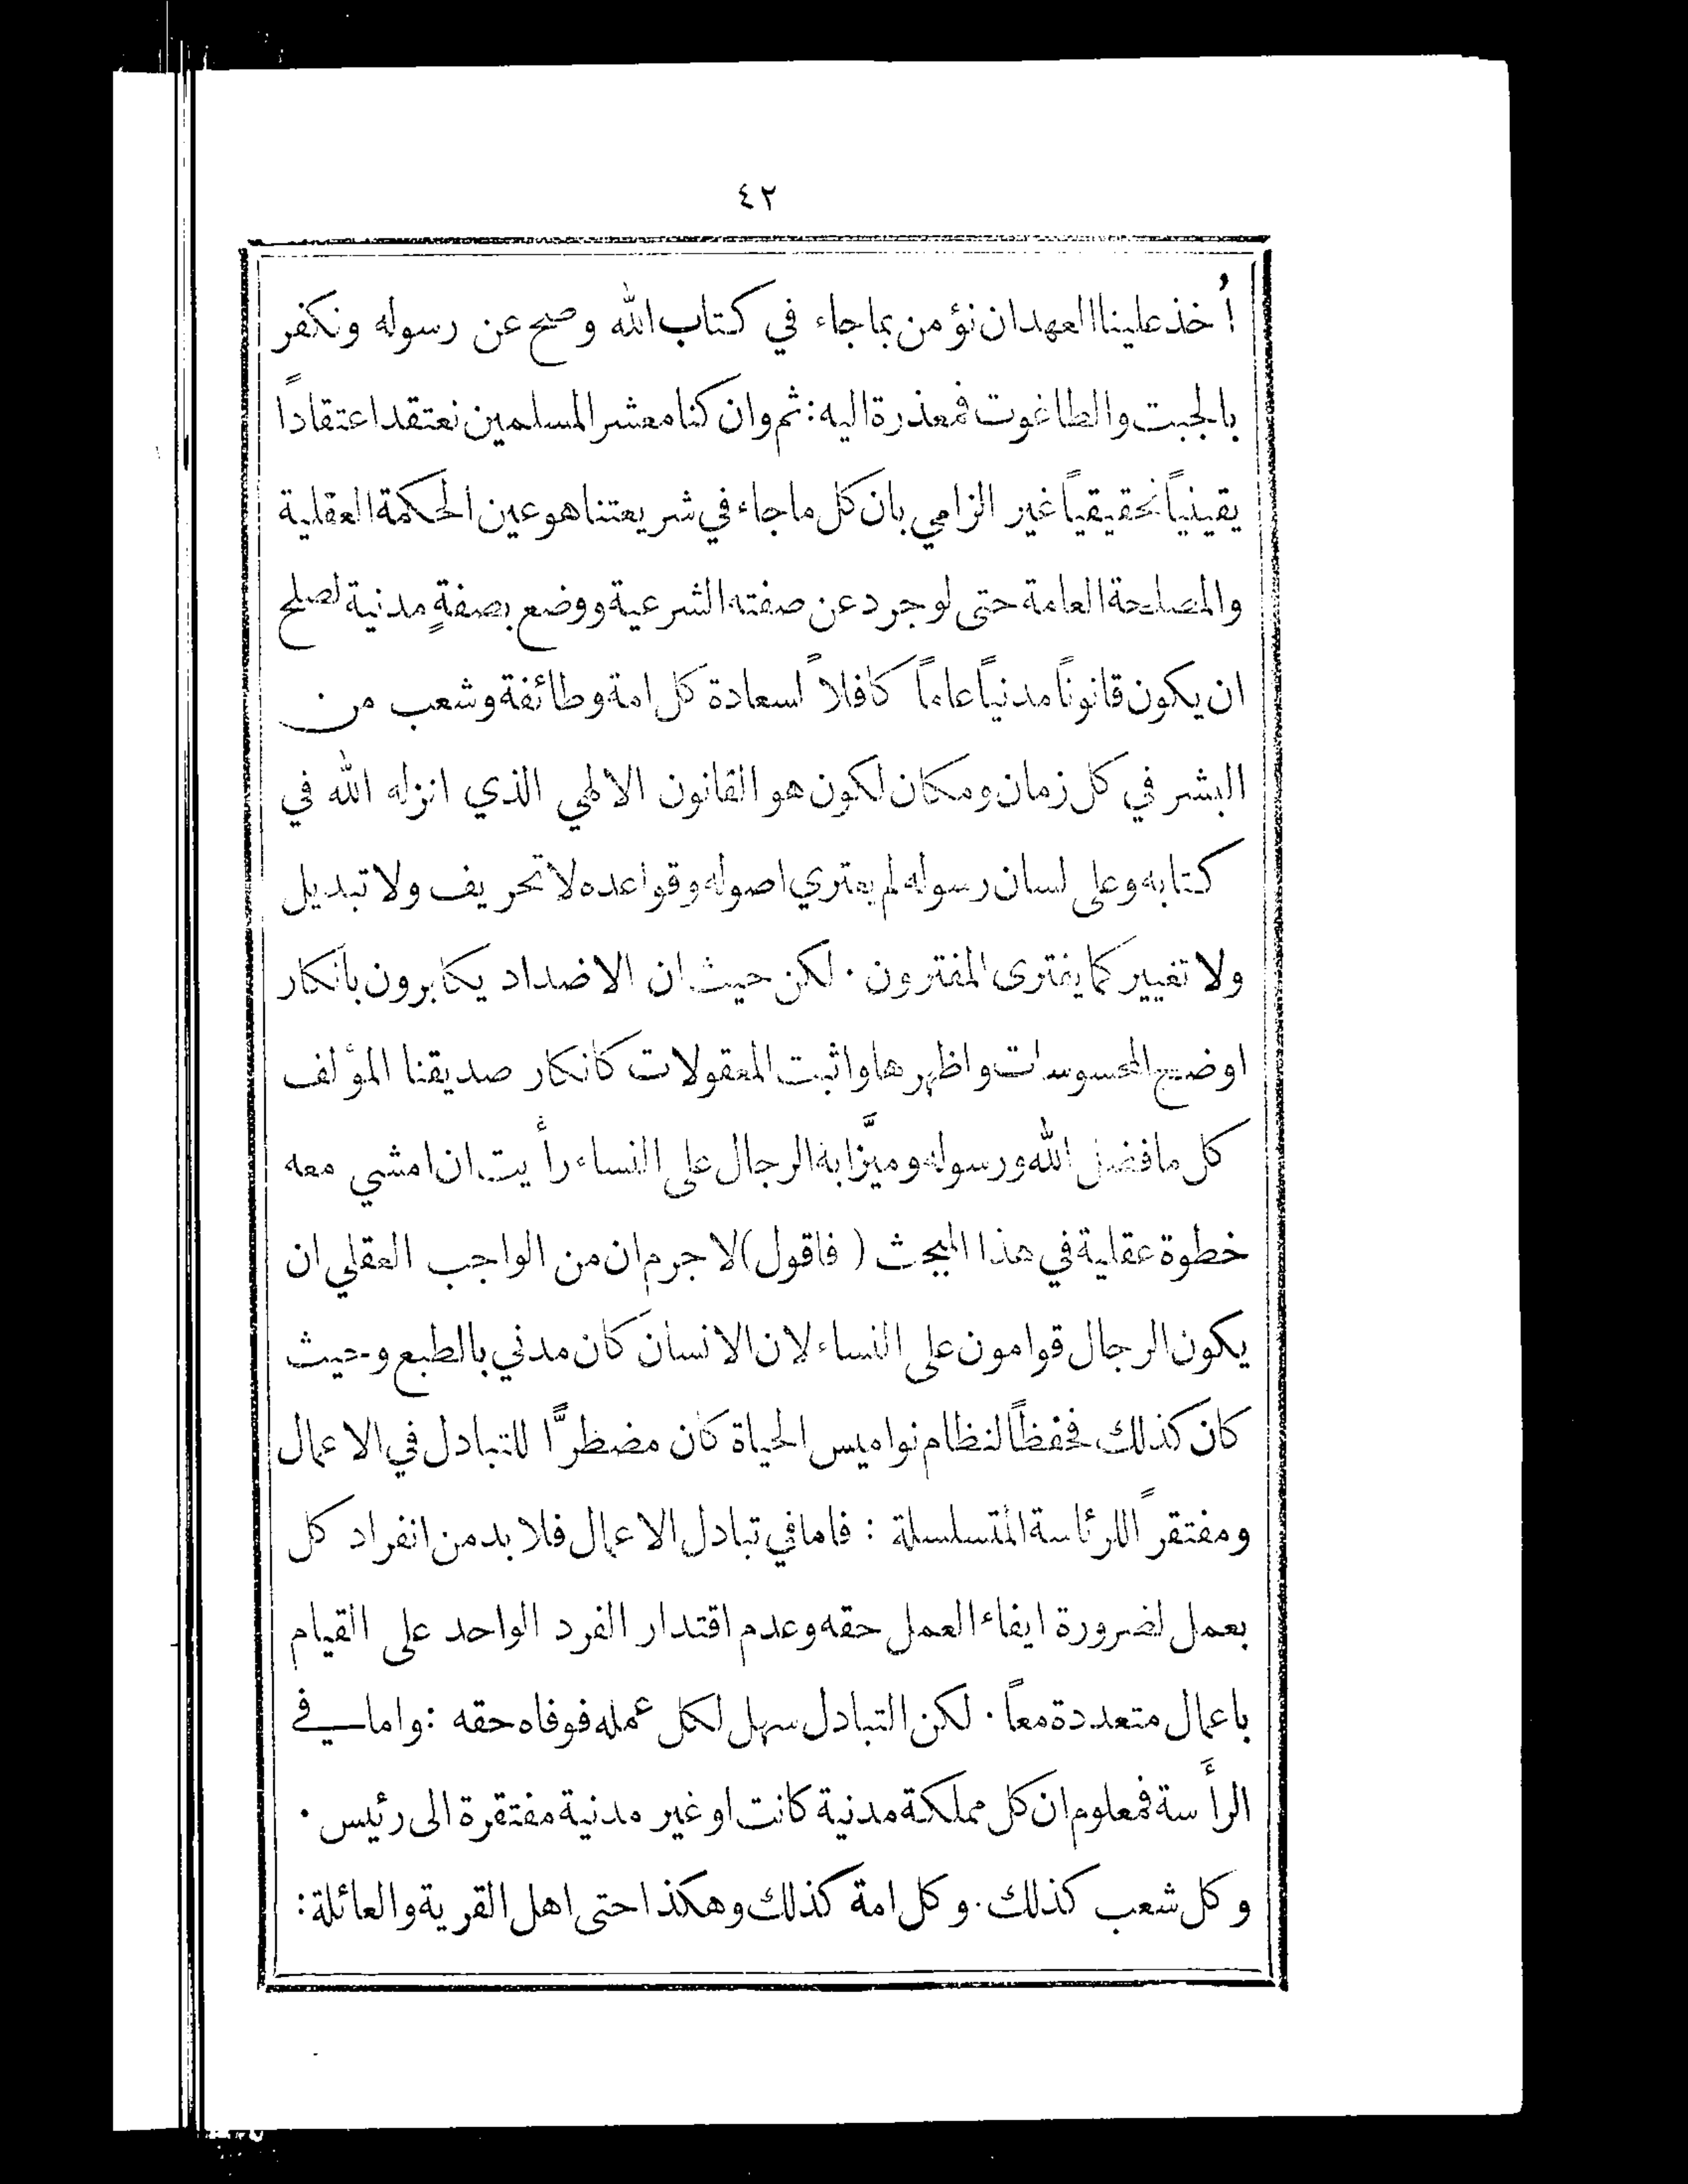 ٤٢
أُخذ علينا العهد ان نؤمن بما جاء في كتاب الله وصح عن رسوله ونكفر
بالجبت والطاغوت فمعذرة اليه : ثم وان كنا معشر المسلمين نعتقد اعتقاداً
يقينياً تحقيقياً غير الزامي بان كل ما جاء في شريعتنا هو عين الحكمة العقلية
والمصلحة العامة حتى لو جرد عن صفته الشرعية ووضع بصفةٍ مدنية لصلح
ان يكون قانوناً مدنياً عاماً كافلاً لسعادة كل امة وطائفة وشعب من
البشر في كل زمان ومكان لكون هو القانون الالهي الذي انزله الله في
كتابه وعلى لسان رسوله لم يعتري اصوله وقواعده لا تحريف ولا تبديل
ولا تغيير كما يفترى المفترون . لكن حيث ان الاضداد يكابرون بأنكار
اوضح المحسوسات واظهرها واثبت المعقولات كانكار صديقنا المؤلف
كل ما فضل الله ورسوله وميَّزا به الرجال على النساء رأيت ان امشي معه
خطوة عقلية في هذا المبحث ( فاقول ) لا جرم ان من الواجب العقلي ان
يكون الرجال قوامون على النساء لان الانسان كان مدني بالطبع وحيث
كان كذلك فحفظاً لنظام نواميس الحياة كان مضطرًّا للتبادل في الاعمال
ومفتقراً للرئاسة المتسلسلة : فاما في تبادل الاعمال فلا بد من انفراد كل
بعمل لضرورة ايفاء العمل حقه وعدم اقتدار الفرد الواحد على القيام
باعمال متعددة معاً . لكن التبادل سهل لكل عمله فوفاه حقه : واما في
الرأَسة فمعلوم ان كل مملكة مدنية كانت او غير مدنية مفتقرة الى رئيس .
وكل شعب كذلك . وكل امة كذلك وهكذا حتى اهل القرية والعائلة :